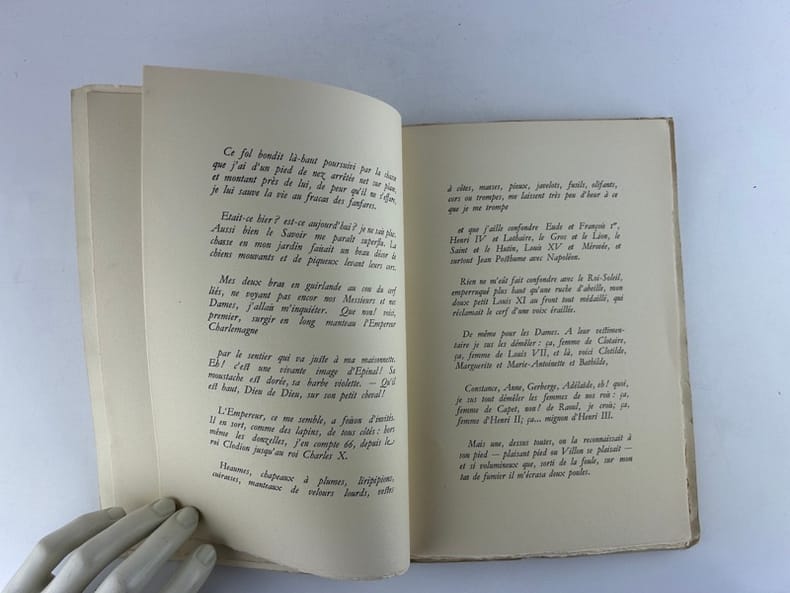 Ce fol bondit là-haut poursuivi par la chasse
que j'ai d'un pied de nez arrêtée net sur place,
et montant près de lui, de peur qu'il ne s'effare,
je lui sauve la vie au fracas des fanfares.
Etait-ce hier ? est-ce aujourd'hui ? je ne sais plus.
Aussi bien le Savoir me paraît superflu. La
chasse en mon jardin faisait un beau décor de
chiens mouvants et de piqueux levant leurs cors.
Mes deux bras en guirlande au cou du cerf
liés, ne voyant pas encor nos Messieurs et nos
Dames, j'allais m'inquiéter. Que non ! voici,
premier, surgir en long manteau l'Empereur
Charlemagne
par le sentier qui va juste à ma maisonnette.
Eh ! c'est une vivante image d'Epinal ! Sa
moustache est dorée, sa barbe violette. — Qu'il
est haut, Dieu de Dieu, sur son petit cheval !
L'Empereur, ce me semble, a foison d'invités.
Il en sort, comme des lapins, de tous côtés : hors
même les donzelles, j'en compte 66, depuis le
roi Clodion jusqu'au roi Charles X.
Heaumes, chapeaux à plumes, liripipions,
cuirasses, manteaux de velours lourds, vestes
à côtes, masses, pieux, javelots, fusils, olifants,
cors ou trompes, me laissent très peu d'heur à ce
que je me trompe
et que j'aille confondre Eude et François 1er,
Henri IV et Lothaire, le Gros et le Lion, le
Saint et le Hutin, Louis XV et Mérovée, et
surtout Jean Posthume avec Napoléon.
Rien ne m'eût fait confondre avec le Roi-Soleil,
emperruqué plus haut qu'une ruche d'abeille, mon
doux petit Louis XI au front tout médaillé, qui
réclamait le cerf d'une voix éraillée.
De même pour les Dames. A leur vestimen-
taire je sus les démêler : ça, femme de Clotaire,
ça, femme de Louis VII, et là, voici Clotilde,
Marguerite et Marie-Antoinette et Bathilde,
Constance, Anne, Gerberge, Adélaïde, eh ! quoi,
je sus tout démêler les femmes de nos rois : ça,
femme de Capet, non ! de Raoul, je crois ; ça,
femme d'Henri II ; ça... mignon d'Henri III.
Mais une, dessus toutes, on la reconnaissait à
son pied — plaisant pied ou Villon se plaisait —
et si volumineux que, sorti de la foule, sur mon
tas de fumier il m'écrasa deux poules.